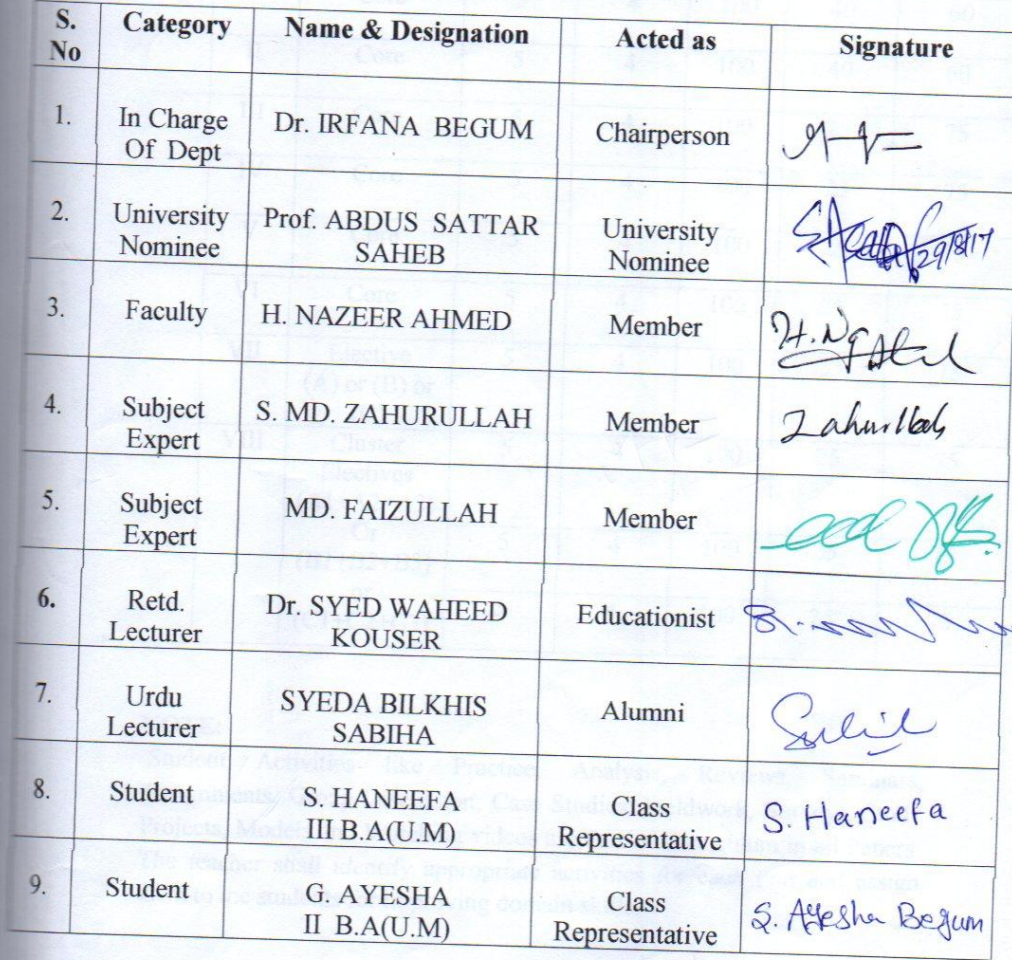 S. No Category Name & Designation Acted as Signature
1. In Charge Of Dept Dr. IRFANA BEGUM Chairperson
2. University Nominee Prof. ABDUS SATTAR SAHEB University Nominee 29/8/17
3. Faculty H. NAZEER AHMED Member
4. Subject Expert S. MD. ZAHURULLAH Member Zahurllah
5. Subject Expert MD. FAIZULLAH Member
6. Retd. Lecturer Dr. SYED WAHEED KOUSER Educationist
7. Urdu Lecturer SYEDA BILKHIS SABIHA Alumni
8. Student S. HANEEFA III B.A(U.M) Class Representative S. Haneefa
9. Student G. AYESHA II B.A(U.M) Class Representative Ayesha Begum